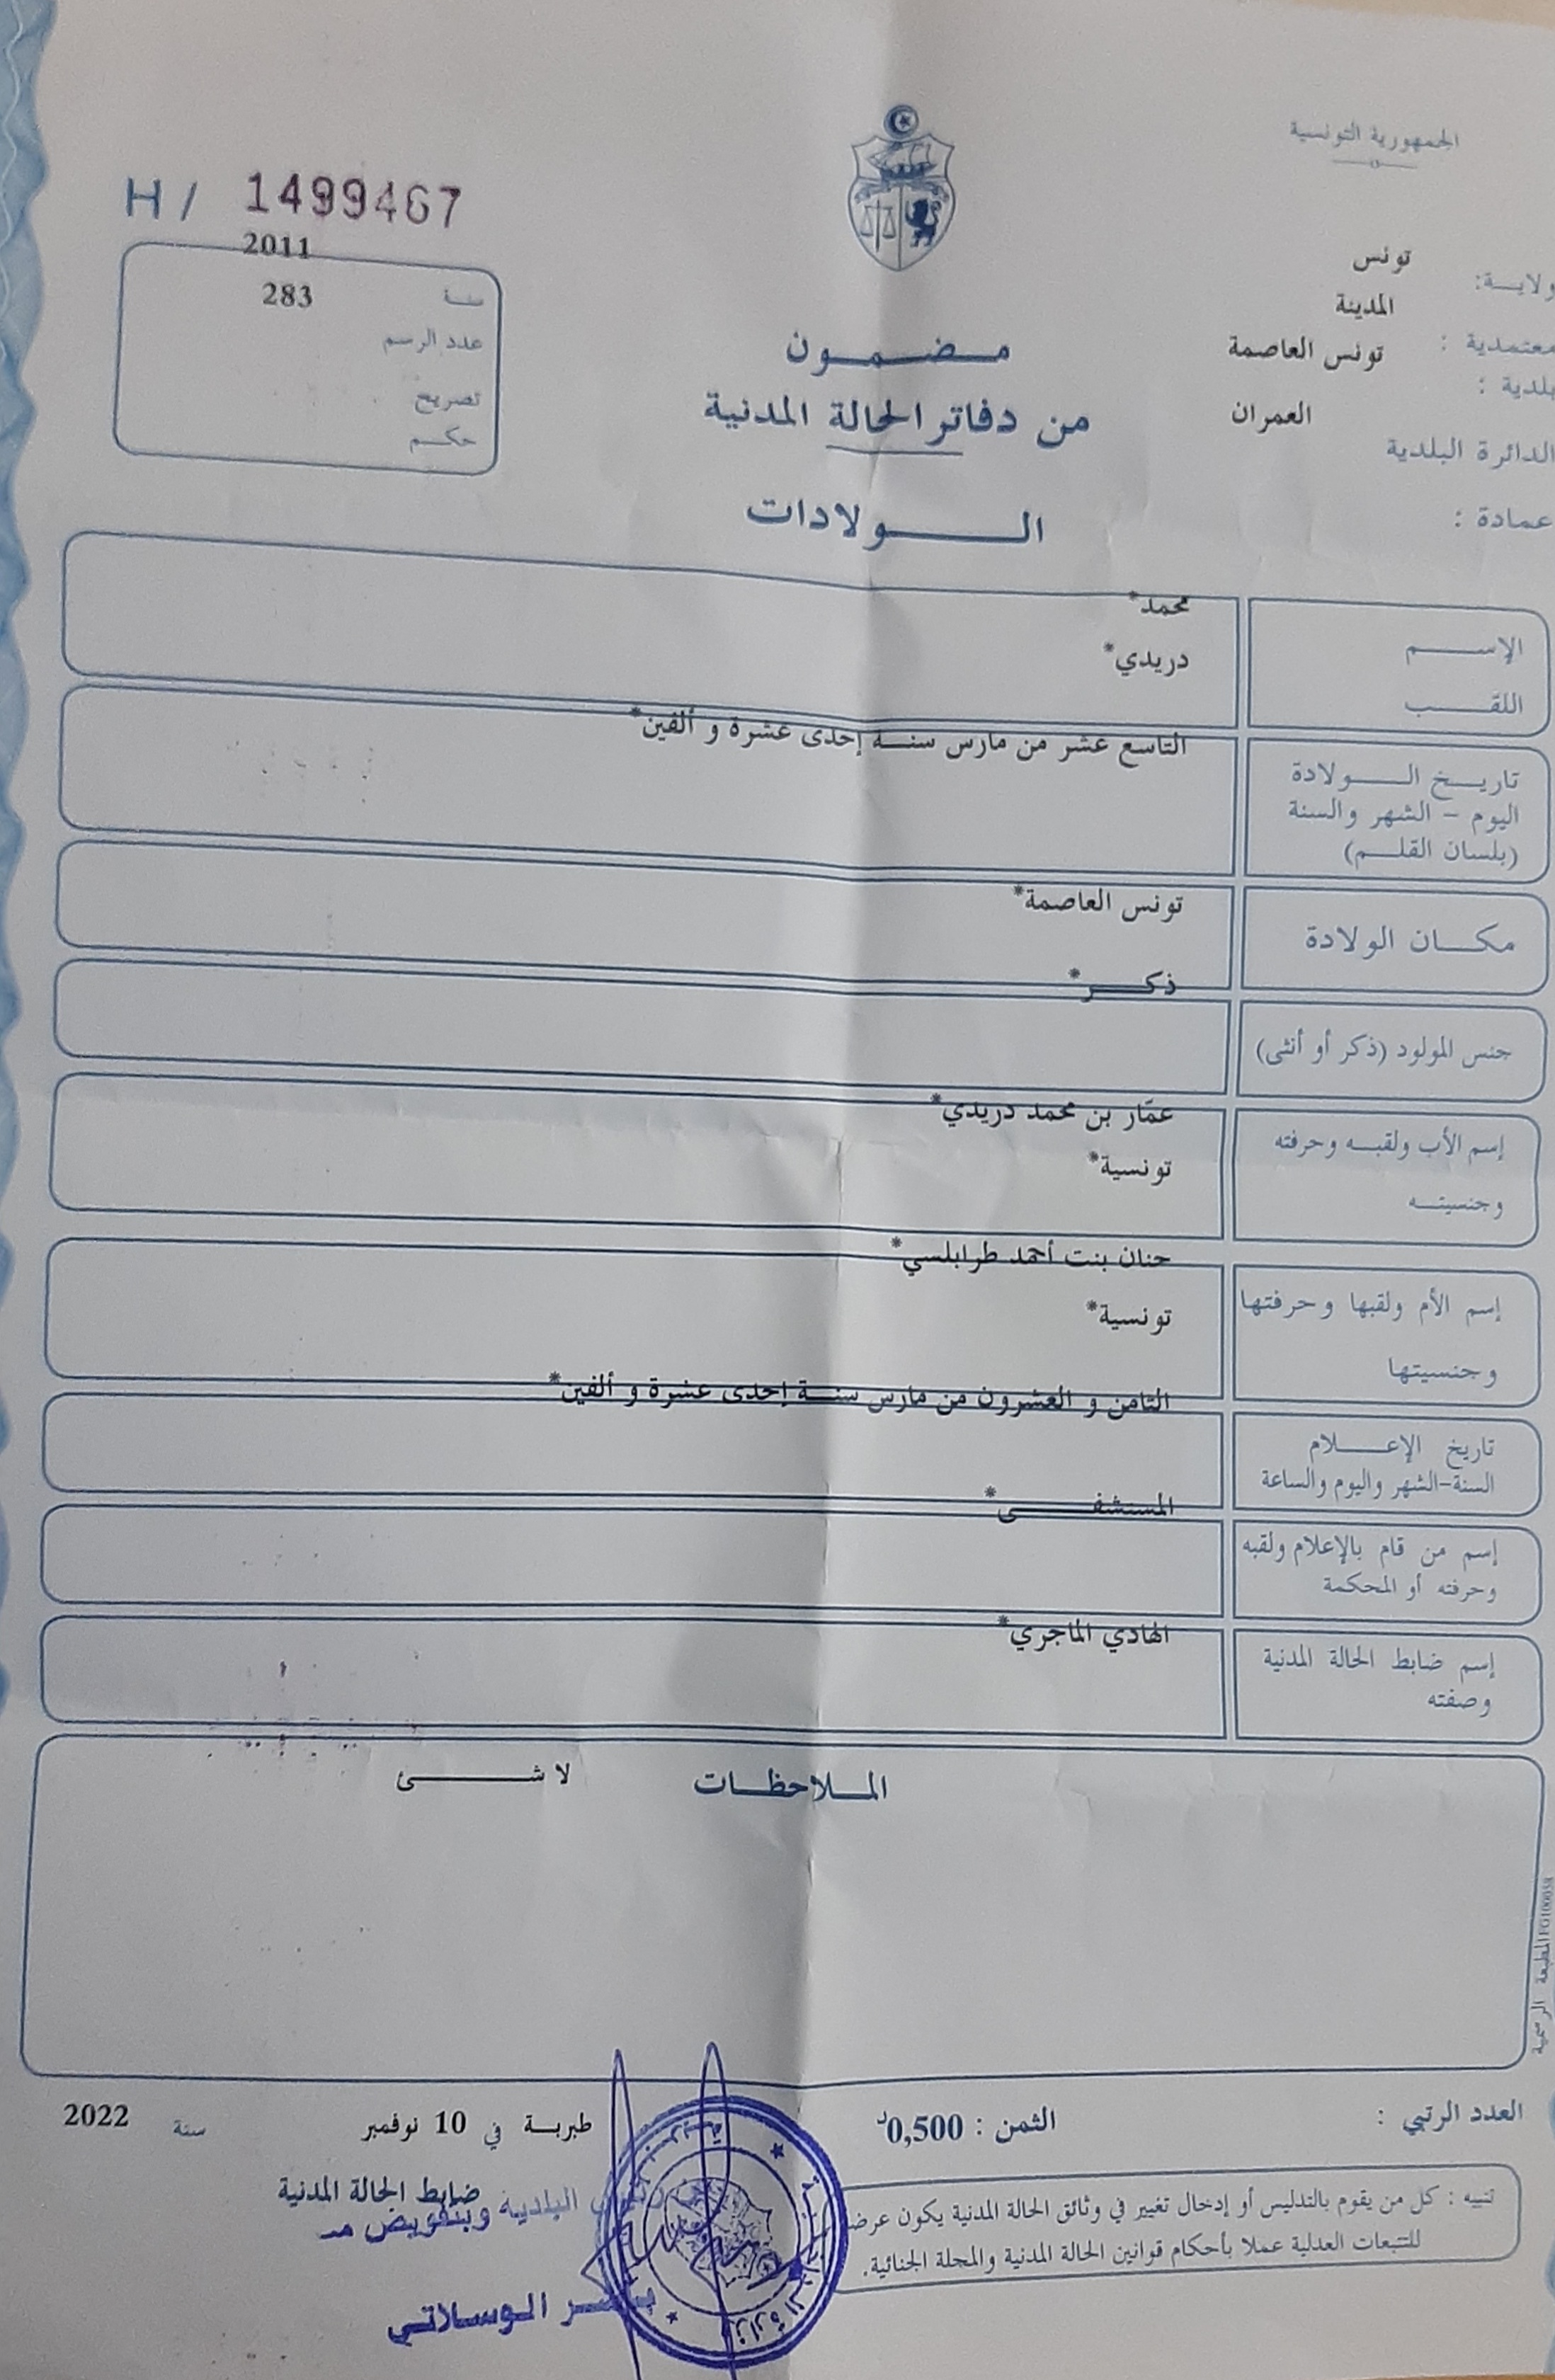 الجمهورية التونسية
H / 1499467
ولايـــة: تونس
معتمدية : المدينة
بلدية : تونس العاصمة
الدائرة البلدية العمران
عمادة :
مـضـمـون
من دفاتر الحالة المدنية
الـــولادات
سنـة 2011
عدد الرسم 283
تصريح
حكـم
الإســـم محمد*
اللقـــب دريدي*
تاريــخ الـــولادة التاسع عشر من مارس سنـــة إحدى عشرة و ألفين*
اليوم – الشهر والسنة
(بلسان القلـــم)
مكـــان الولادة تونس العاصمة*
جنس المولود (ذكر أو أنثى) ذكـــر*
إسم الأب ولقبـــه وحرفته عمّار بن محمد دريدي*
وجنسيتـــه تونسية*
إسم الأم ولقبها وحرفتها حنان بنت أحمد طرابلسي*
وجنسيتها تونسية*
تاريخ الإعـــلام الثامن و العشرون من مارس سنـــة إحدى عشرة و ألفين*
السنة-الشهر واليوم والساعة
إسم من قام بالإعلام ولقبه المستشفـــى*
وحرفته أو المحكمة
إسم ضابط الحالة المدنية الهادي الماجري*
وصفته
الملاحظات لا شـــئ
المطبعة الرسمية
العدد الرتبي :
الثمن : 0,500د
طبربـة في 10 نوفمبر سنة 2022
ضابط الحالة المدنية
البلدية وبتفويض
الوسلاتي
تنبيه : كل من يقوم بالتدليس أو إدخال تغيير في وثائق الحالة المدنية يكون عرضة
للتتبعات العدلية عملا بأحكام قوانين الحالة المدنية والمجلة الجنائية.